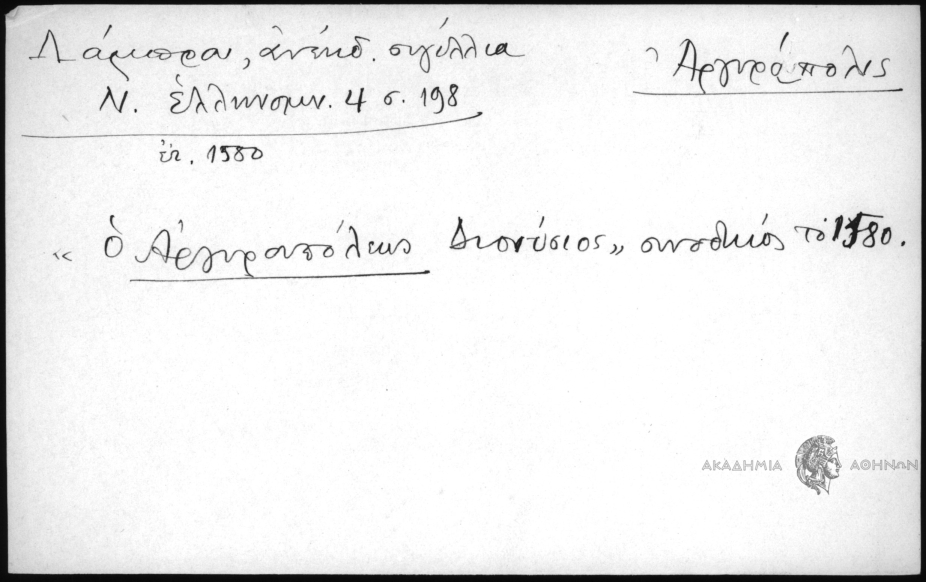 Λάμπρου, ἀνέκδ. σιγίλλια
Ν. Ἑλληνομν. 4 σ. 198
ἔτ. 1580
Ἀργυρόπολις
« Ὁ Ἀργυροπόλεως Διονύσιος » συνοδικός τὸ 1580.
ΑΚΑΔΗΜΙΑ ΑΘΗΝΩΝ